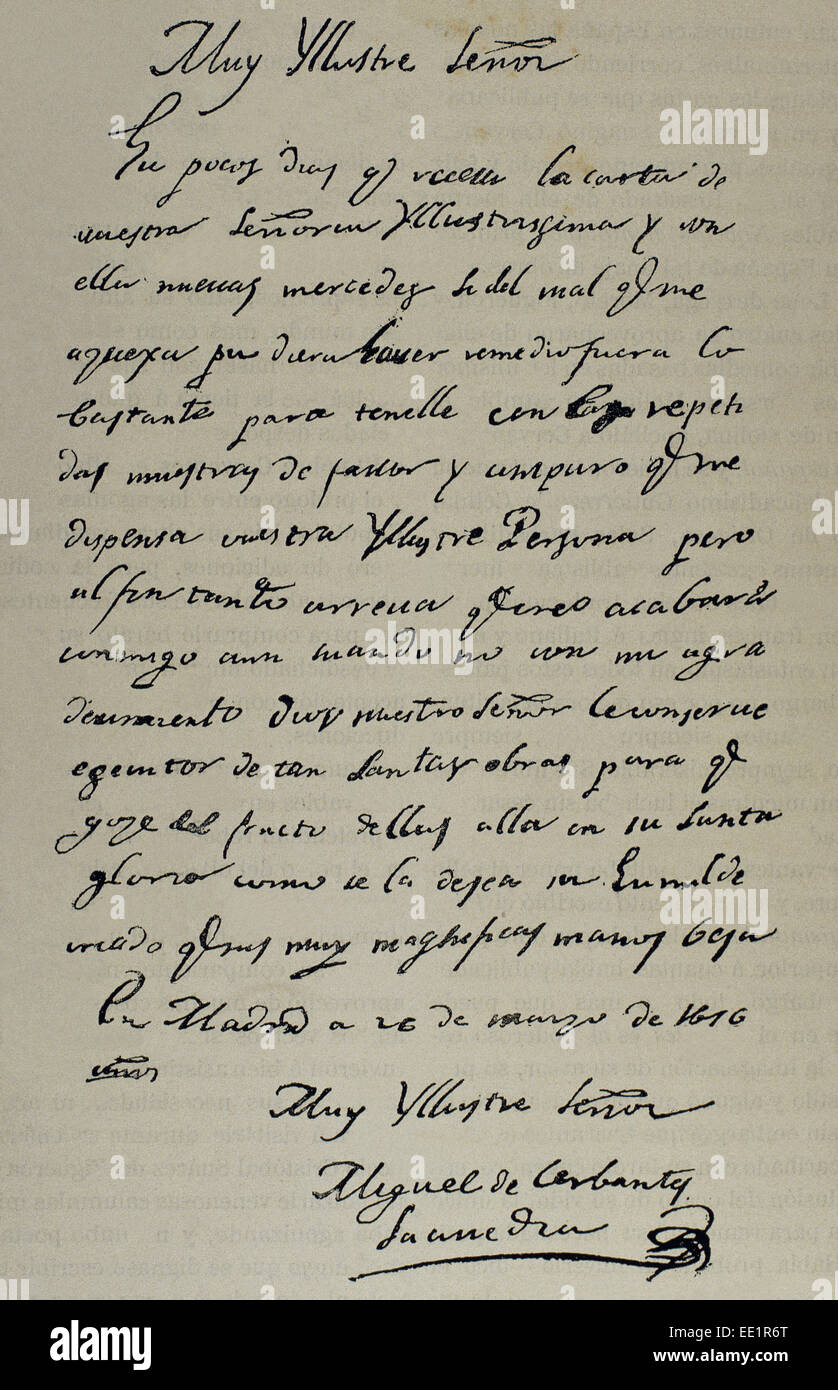 Muy Yllustre Señor
Ha pocos dias q̃ receui la carta de
vuestra Señoria Yllustrissima y con
ella nueuas mercedes si del mal q̃ me
aquexa pudiera hauer remedio fuera lo
bastante para tenelle con las repeti
das muestras de fauor y amparo q̃ me
dispensa vuestra Yllustre Persona pero
al fin tanto arrecia q̃ creo acabara
conmigo aun cuando no con mi agra
decimiento dios nuestro Señor le conserue
egecutor de tan Santas obras para q̃
goze del fructo dellas alla en su Santa
gloria como se la desea su humilde
criado q̃ sus muy magnificas manos besa
En Madrid a 26 de marzo de 1616
años
Muy Yllustre Señor
Miguel de Cerbantes
Saauedra
alamy
Image ID: EE1R6T
www.alamy.com